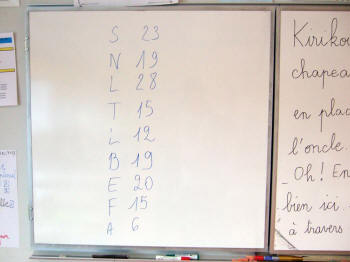 S 23
N 19
L 28
T 15
i 12
B 19
E 20
F 15
A 6
Kirikou
chapea
en plac
l'oncle.
_ Oh! En
bien ici
à travers